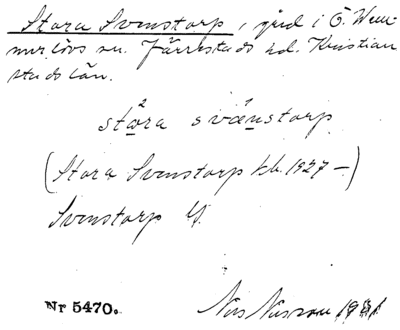 Stora Svenstorp, gård i Ö. Vem-
murlövs sn. Järrestads hd. Kristian
stads län.
2 1
stora svänstorp
(Stora Svenstorp kb. 1927 –)
Svenstorp
Nr 5470. Nils Nilsson